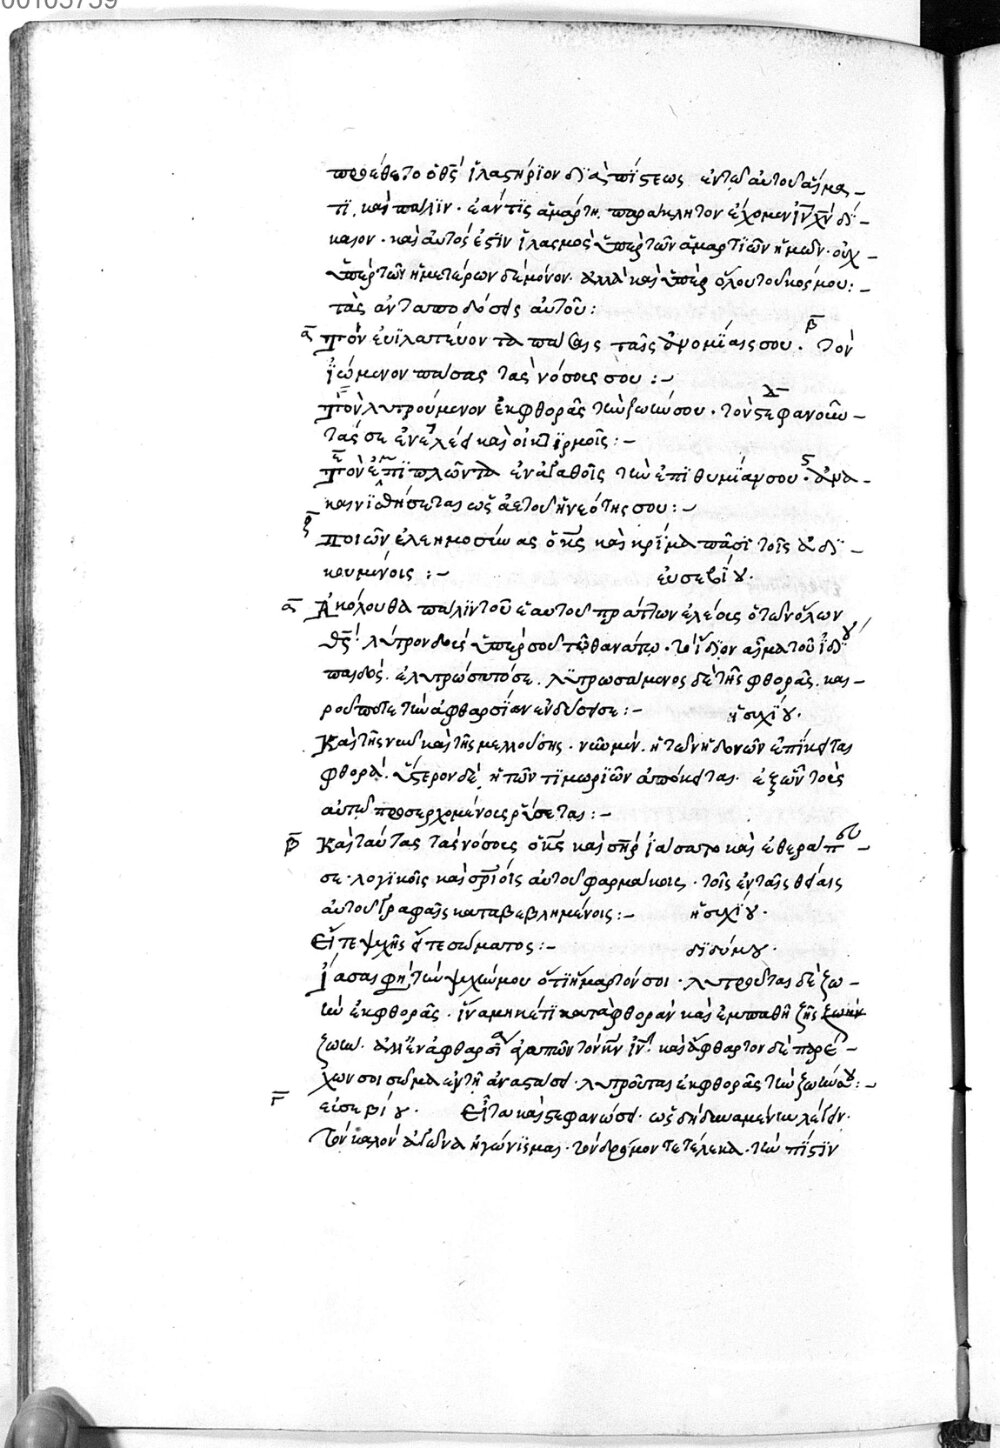 00105759
προέθετο ὁ θς̄ ἱλαστήριον διὰ πίστεως ἐν τῷ αὐτοῦ αἵμα-
τι, καὶ πάλιν· ἐάν τις ἁμάρτῃ παράκλητον ἔχομεν ῑν̄ χ̄ν̄ δί-
καιον· καὶ αὐτὸς ἐστὶν ἱλασμὸς ὑπὲρ τῶν ἁμαρτιῶν ἡμῶν· οὐχ
ὑπὲρ τῶν ἡμετέρων δὲ μόνον· ἀλλὰ καὶ ὑπὲρ ὅλου τοῦ κόσμου:-
τὰς ἀνταποδόσεις αὐτοῦ:
ᾱ Τὸν εὐϊλατεύοντα πάσαις ταῖς ἀνομίαις σου. β̄ τὸν
ἰώμενον πάσας τὰς νόσους σου:-
γ̄ Τὸν λυτρούμενον ἐκ φθορᾶς τὴν ζωήν σου· δ̄ τὸν στεφανοῦν-
τά σε ἐν ἐλέει καὶ οἰκτιρμοῖς:-
ε̄ Τὸν ἐμπιπλῶντα ἐν ἀγαθοῖς τὴν ἐπιθυμίαν σου· ς ἀνα-
καινισθήσεται ὡς ἀετοῦ ἡ νεότης σου:-
ζ̄ ποιῶν ἐλεημοσύνας ὁ κς̄ καὶ κρίμα πᾶσι τοῖς ἀδι-
κουμένοις:- εὐσεβίου·
ᾱ Ἀκόλουθα πάλιν τοῦ ἑαυτοῦ πράττων ἐλέοις ὁ τῶν ὅλων
θς̄· λύτρον δοὺς ὑπὲρ σοῦ τῷ θανάτῳ· τὸ ἴδιον αἷμα τοῦ ἰδίου
παιδός· ἐλυτρώσατό σε. λυτρωσάμενος δὲ τῆς φθορᾶς. και-
ροῦ ποτε τὴν ἀφθαρσίαν ἐνδύσει σε:- ἡσυχίου·
Καὶ τῆς νῦν καὶ τῆς μελλούσης· νῦν μὲν, ἡ τῶν ἡδονῶν ἐπίκειται
φθορά. ὕστερον δὲ, ἡ τῶν τιμωριῶν ἀπόκειται· ἐξ ὧν τοὺς
αὐτῷ προσερχομένους ῥύσεται:-
β̄ Καὶ ταύτας τὰς νόσους ὁ κς̄ καὶ σηρ̄ ἰάσατο καὶ ἐθεράπευ-
σε· λογικοῖς καὶ σωτηρίοις αὐτοῦ φαρμάκοις· τοῖς ἐν ταῖς θείαις
αὐτοῦ γραφαῖς καταβεβλημένοις:- ἡσυχίου·
Εἴτε ψυχῆς εἴτε σώματος:- διδύμου·
Ἴασαι φησὶ τὴν ψυχήν μου ὅτι ἥμαρτόν σοι· λυτροῦται δὲ ζω-
ὴν ἐκ φθορᾶς· ἵνα μηκέτι κατὰ φθορὰν καὶ ἐμπαθῆ ζῇς ζωὴν
ζωήν· ἀλλ' ἐν ἀφθαρσίᾳ ἀγαπῶν τὸν κν̄ ῑν̄· καὶ ἄφθαρτον δὲ παρέ-
χων σοι σῶμα ἐν τῇ ἀναστάσει· λυτροῦται ἐκ φθορᾶς τὴν ζωήν σου:-
γ̄ εὐσεβίου· Εἶτα καὶ στεφανώσει· ὡς δὴ δυναμένην λέγειν·
τὸν καλὸν ἀγῶνα ἠγώνισμαι· τὸν δρόμον τετέλεκα· τὴν πίστιν